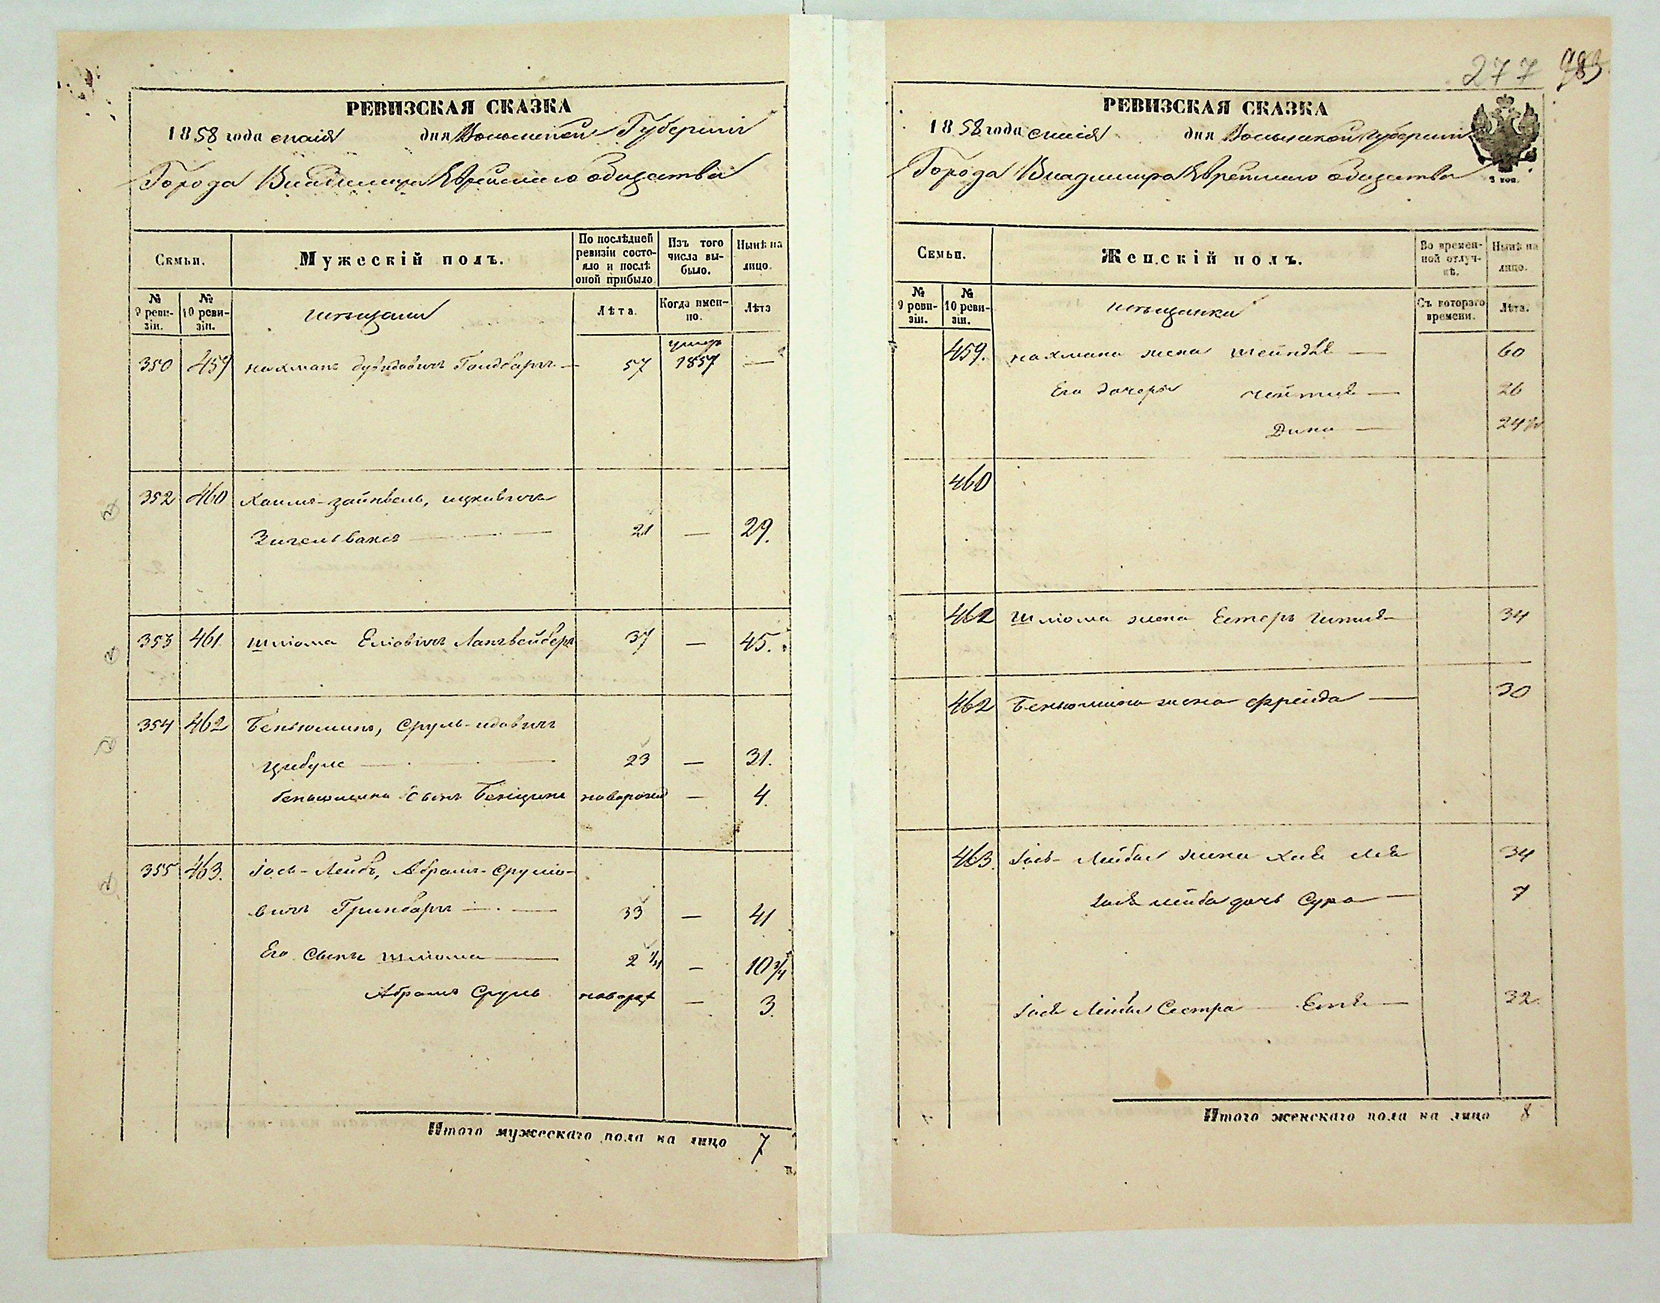 277 983
РЕВИЗСКАЯ СКАЗКА
1858 года дня Волынской Губернии
Города Владимира Еврейского общества
Семьи.
Мужескій полъ.
По послѣдней ревизіи состояло и послѣ оной прибыло
Изъ того числа выбыло.
Нынѣ на лицо.
№ 9 ревизіи.
№ 10 ревизіи.
мѣщане
Лѣта.
Когда именно.
Лѣта
350 459 Нахманъ Гольдбаръ — 57 умеръ 1857 —
352 460 Хаимъ-Зайнвель, Ицковичъ
21 — 29.
353 461 Шліома Еліовичъ 37 — 45.
354 462 Беньюминъ, Сруль-Идовичъ
Цибуле 23 — 31.
Беньюмина сынъ новорож — 4.
355 463. Іось-Лейбъ, Абрамъ-Сруліо-
вичъ Гринбаръ 33 — 41
Его сынъ Шліома 2 — 10 3/4
Абрамъ Сруль новорож — 3.
Итого мужескаго пола на лицо 7
РЕВИЗСКАЯ СКАЗКА
1858 года дня Волынской Губерніи
Города Владимира Еврейского общества
Семьи.
Женскій полъ.
Во временной отлучкѣ.
Нынѣ на лицо.
№ 9 ревизіи.
№ 10 ревизіи.
мѣщанки
Съ котораго времени.
Лѣта.
459. Нахмана жена Шейндля — 60
Его дочери 26
Дина — 24
460
462 Шліома жена Естеръ Гитля 34
462 Беньюмина жена Фрейда — 30
463. Іось-Лейбы жена Хая Лея 34
Іося Лейба дочь Сура — 7
Іося Лейбы Сестра Етля — 32.
Итого женскаго пола на лицо 8